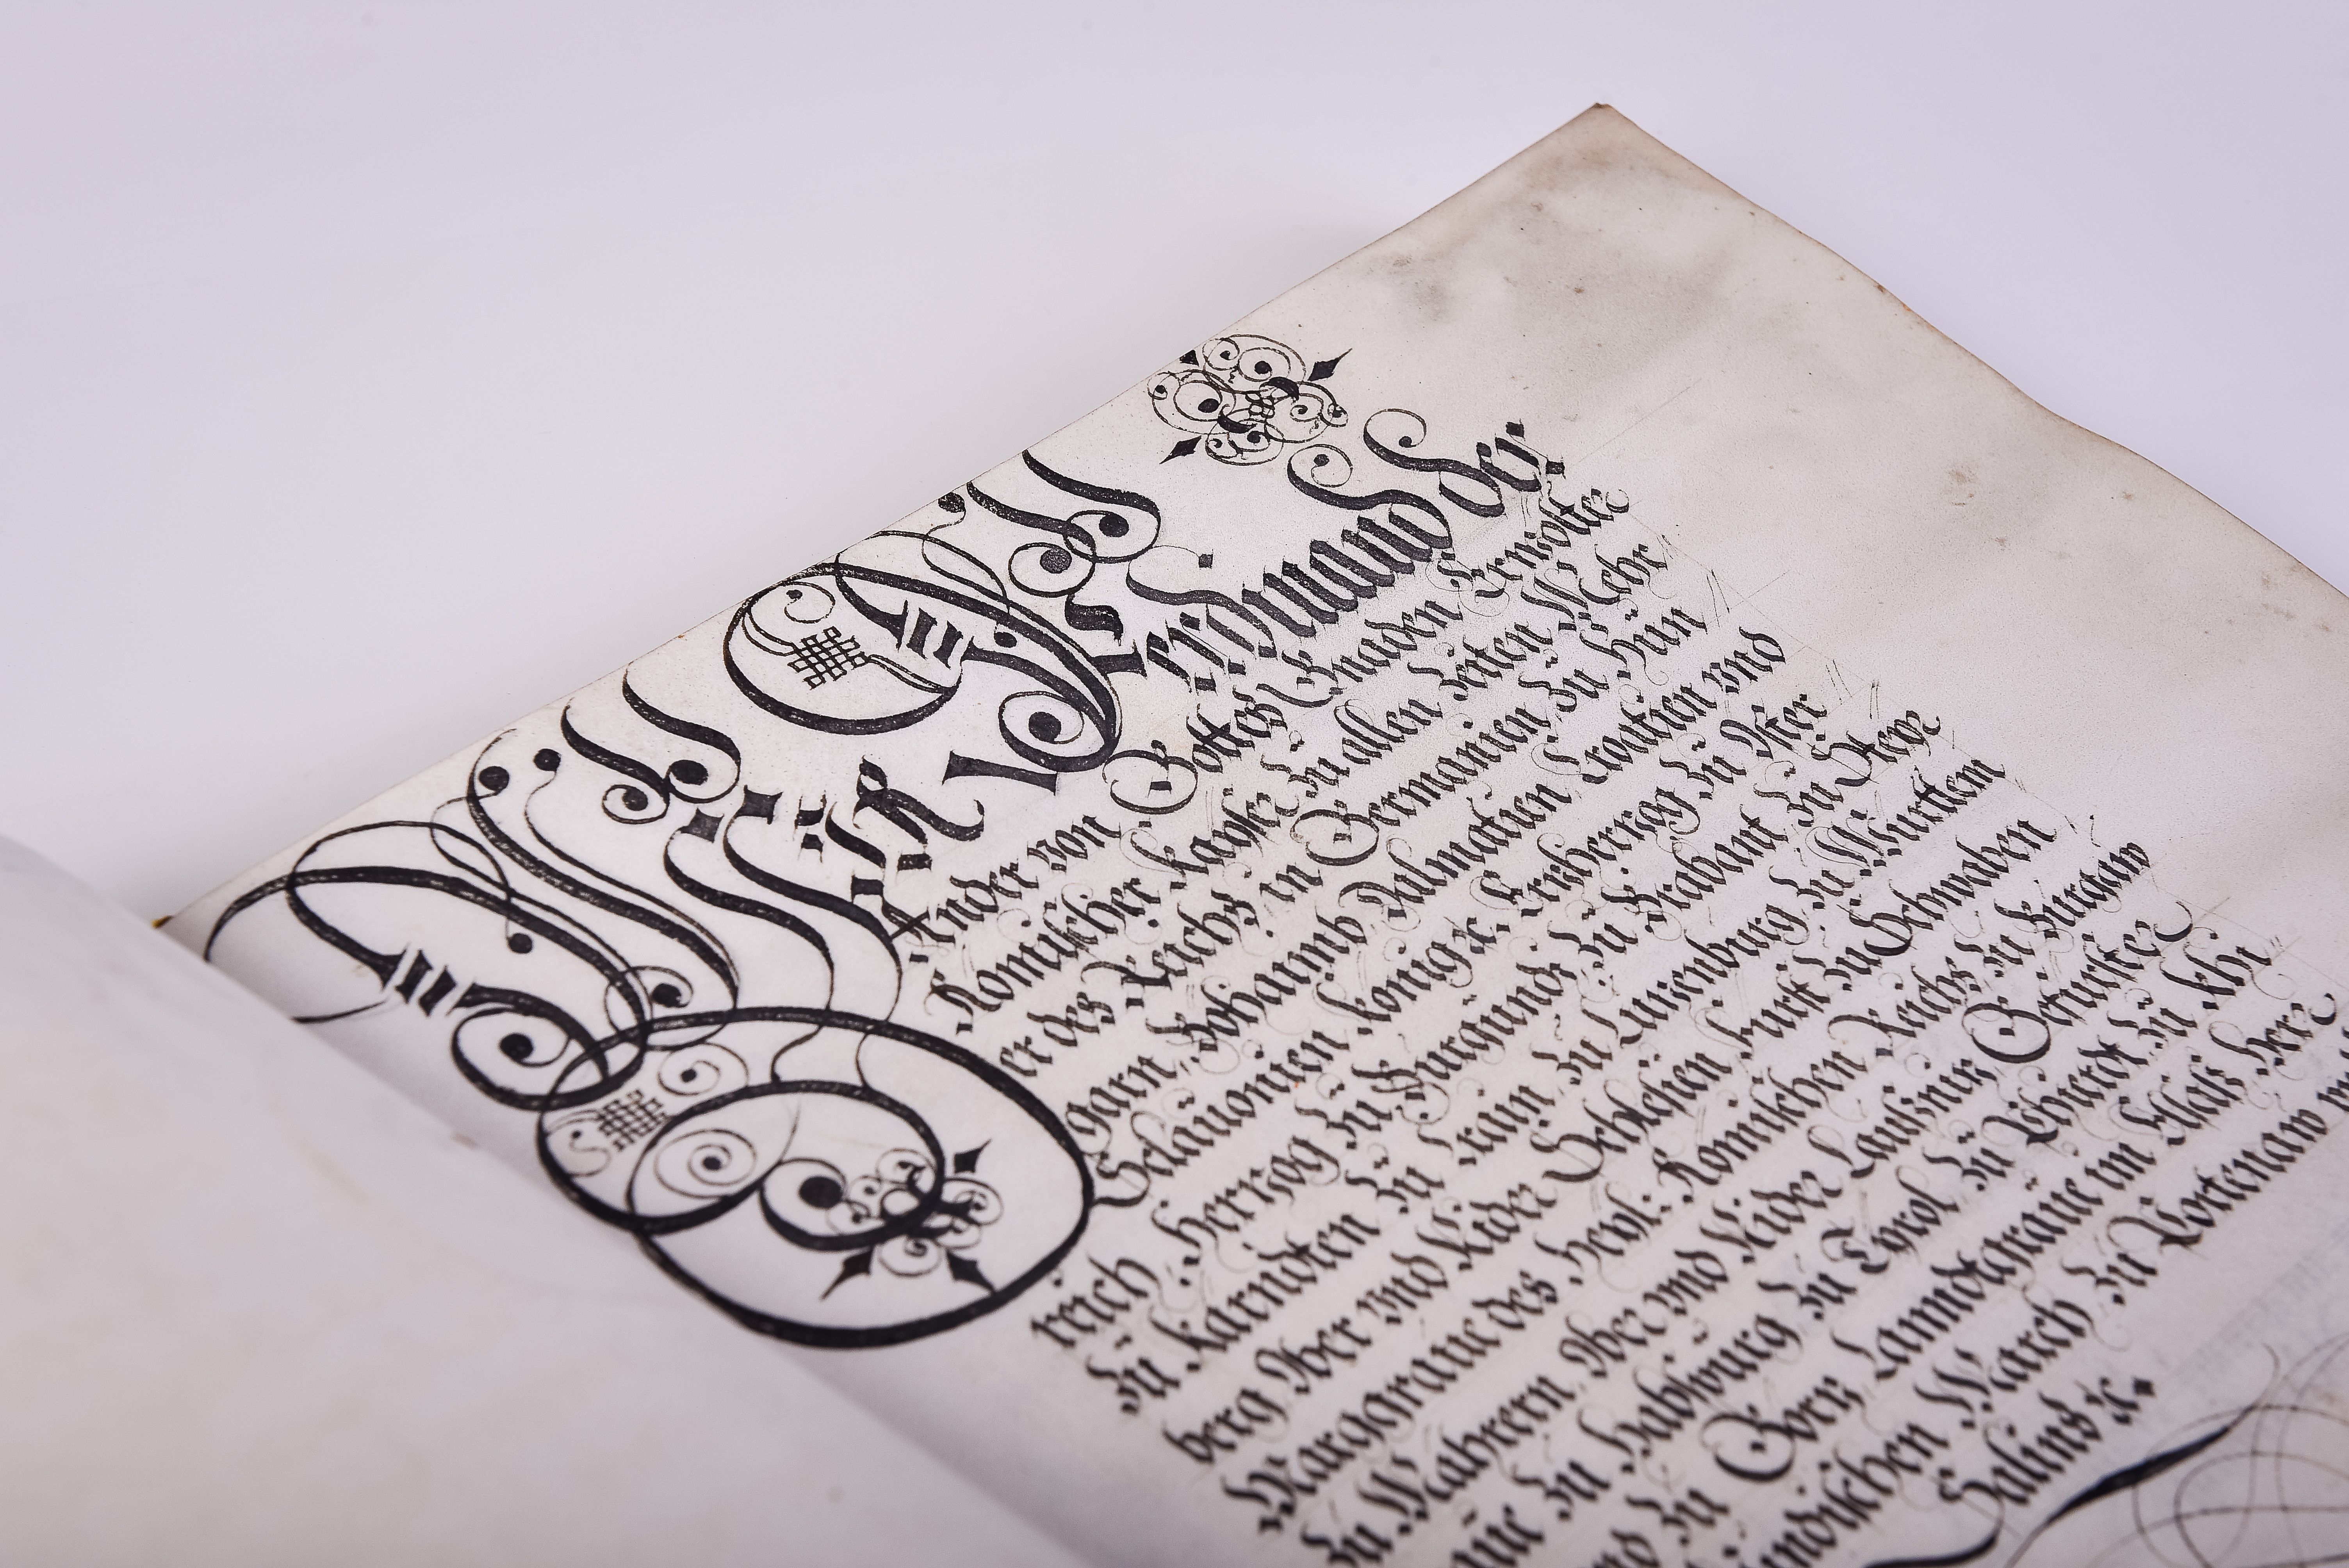 Wir Ferdinand der
Ander von Gottes Gnaden Erwölter
Römischer Kayser Zu allen Zeiten Mehr
er des Reichs in Germanien Zu Hün
garn, Böhaimb Dalmatien Croatien vnd
Sclauonien König ꝛc. Erzherzog Zu Öster
reich, Herzog Zu Burgundi Zu Brabant Zu Steyr
Zu Kärndten Zu Crain Zu Luzenburg Zu Württem
berg Ober vnd Nider Schlesien Fürst Zu Schwaben
Marggraue des Heyl: Römischen Reichs Zu Burgaw
Zu Mahrern Ober vnd Nider Lausiniz Gefürster
Zu Habsburg Zu Tyrol Zu Phierdt Zu Khi
Zu Görz Lanndtgraue im Elsaß Herr
March Zu Portenaw
Salins ꝛc.